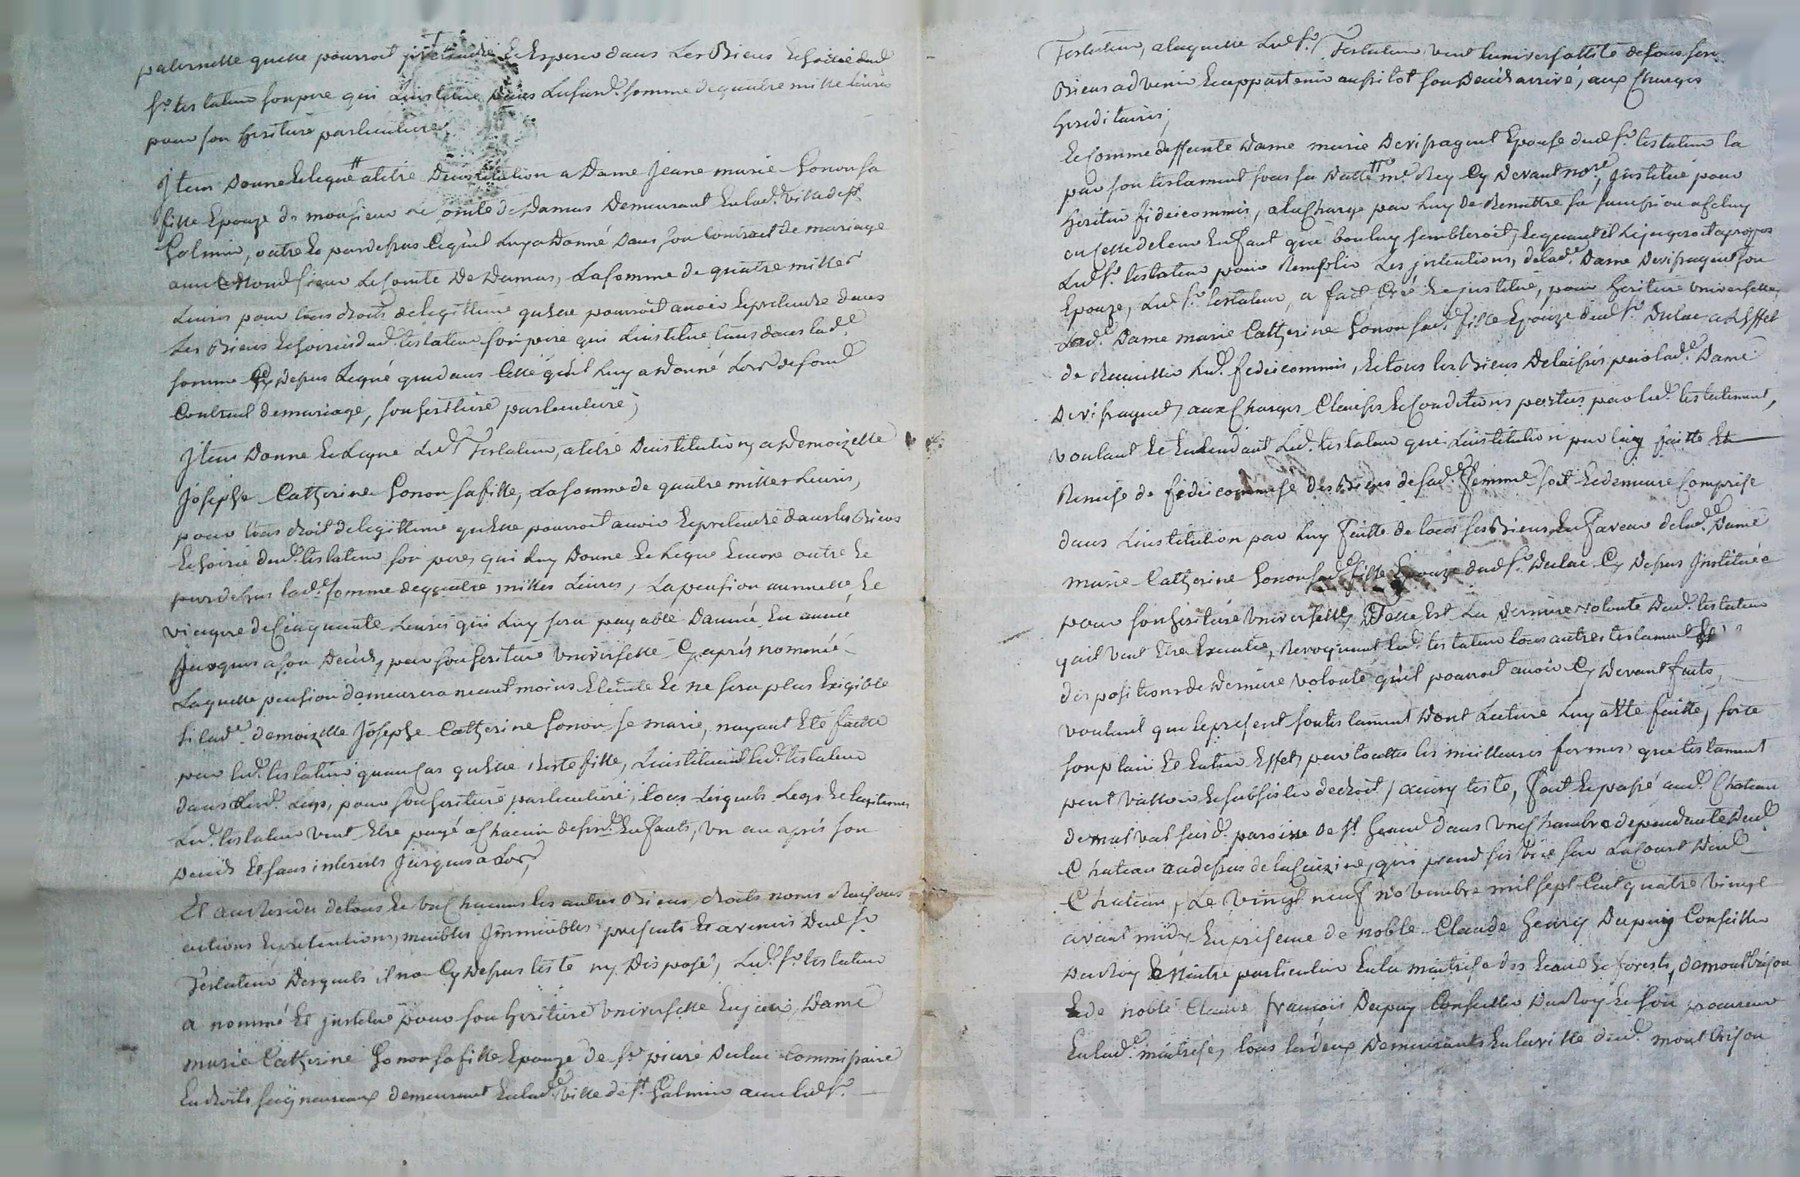 paternelle quelle pourroit pretendre et Esperer dans Les Biens Et hoirie dud
sr. testateur son pere qui Linstitue dans Lasusd. somme de quatre mille Livres
pour son heritiere particuliere,
Item Donne et Legue atitre Dinstitution a Dame Jeane marie Gonon sa
fille Epouze de monsieur Le Comte de Damas Demeurant En lad. ville de st.
Galmier, outre Le pardessus Cequil Luy a Donné Dans son Contract de mariage
avec Mond. sieur Le Comte De Damas, La somme de quatre milles
Livres pour tous droits de legittime quelle pourroit avoir Et pretendre dans
Les Biens Et hoirie dud. testateur son pere qui Linstitue tant dans lad.e
somme Cy dessus Legué que dans Celle quil Luy a Donné Lors de sond.
Contract de mariage, son heritiere particuliere,
Item Donne Et Legue Led. Testateur, atitre Dinstitution, a Demoizelle
Josephe Catherine Gonon sa fille, La somme de quatre milles Livres,
pour tous droit de legittime quelle pourroit avoir Et pretendre dans les Biens
Et hoirie dud. testateur son pere, qui Luy Donne Et Legue Encore outre Le
pardessus lad.e somme de quatre milles Livres, La pension annuelle, Et
viagere de Cinquante Livres qui Luy sera payable Dannée En année
Jusques a son Decés, par son heritiere universelle Cy aprés nommée
Laquelle pension demeurera neantmoins Eteinte Et ne sera plus Exigible
si lad.e demoizelle Josephe Catherine Gonon se marie, nayant Eté faitte
par led. testateur quau Cas quelle reste fille, Linstituant led. testateur
dans led. Legs, pour son heritiere particuliere, tous Lesquels Legs Et legitimes
Led. testateur veut Etre payé a Chacun desd. Enfants, un an aprés son
Decés Et sans interests Jusques a Lors,
Et au Residu de tous Et un Chacuns les autres Biens, droits noms Raisons
actions Et pretentions, meubles Immeubles presents Et avenir Dud. sr.
Testateur Desquels il na Cy Dessus testé ny Disposé, Led. sr. testateur
a nommé Et Institué pour son heritiere universelle Dame
marie Catherine Gonon sa fille Epouze de sr. pierre Dulac Commissaire
En droits seigneuriaux demeurant En lad. ville de st. Galmier avec led. sr.
Testateur, alaquelle Led. sr. Testateur veut Luniversallité de tous ses
Biens advenir Et appartenir aussitot son Decés arrivé, aux Charges
hereditaires,
Et Comme deffunte Dame marie Deripagent Epouse dud. sr. testateur la
par son testament sous sa Datte me. Rey Cy Devant nore., Institué pour
heritier fideicommis, ala Charge par Luy de Remettre sa succession a Celuy
ou Celle de leur Enfant que bon luy sembleroit, Et quand il Le jugeroit apropos
Led. sr. testateur pour Remplir Les intentions, de lad.e Dame Deripagent son
Epouze, Led. sr. testateur, a fait Crée Et institué, pour heritiere universelle,
Lad.e Dame marie Catherine Gonon sad. fille Epouze dud. sr. Dulac a Leffet
de Recueillir Led. fideicommis, Et tous les Biens Delaissés par lad.e Dame
Deripagent, aux Charges Clauses Et Conditions portées par led. testament,
voulant Et Entendant Led. testateur que Linstitution par luy faitte Et
Remise de fideicommise des Biens de sad.e femme soit Et demeure Comprise
dans Linstitution par Luy faitte de tous ses Biens En faveur de lad.e Dame
marie Catherine Gonon sad. fille Epouze dud. sr. Dulac Cy Dessus Instituée
pour son heritiere universelle, Telle Est La derniere volonté Dud. testateur
quil veut Etre Executée, Revoquant Led. testateur tous autres testament Et
dispositions de Derniere volonté quil pourroit avoir Cy Devant faits,
voulant que Le present son testament Dont Lecture Luy a Eté faitte, sorte
son plain Et Entier Effet, par touttes les meilleures formes que testament
peut valloir Et subsister de droit, ainsy testé, fait Et passé aud. Chateau
de malval susd. paroisse de st. heand dans une Chambre dependante dud.
Chateau audessus de la Cuizine, qui prend ses vüe sur La Court dud.
Chateau, Le vingt neuf novembre mil sept Cent quatre vingt
avant midy En presence de noble Claude henry Dupuy Conseiller
Du Roy Maitre particulier En la maitrise des Eaux Et forests, de montbrison
Et de noble Claude françois Dupuy Conseiller Du Roy Et son procureur
En lad.e maitrise, tous les deux Demeurants En la ville dud. montbrison